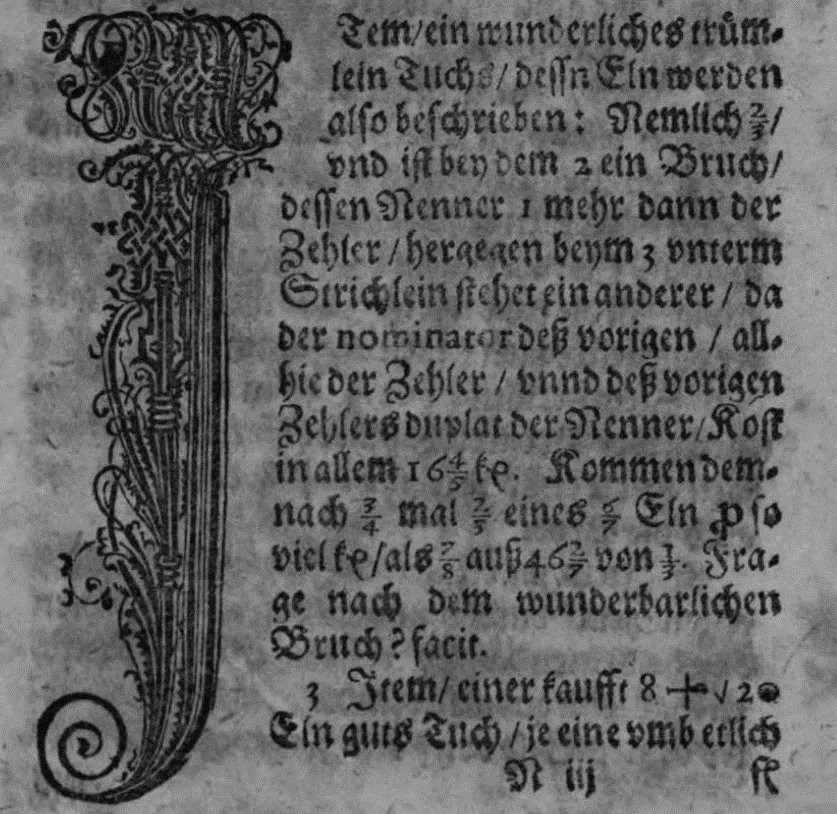 JTem/ein wunderliches trům-
lein Tuchs/dessn Eln werden
also beschrieben: Nemlich 2/3/
vnd ist bey dem 2 ein Bruch/
dessen Nenner 1 mehr dann der
Zehler/hergegen beym 3 vnterm
Strichlein stehet ein anderer/da
der nominator deß vorigen/all-
hie der Zehler/vnnd deß vorigen
Zehlers duplat der Nenner/Kost
in allem 16 4/5 ke. Kommen dem-
nach 3/4 mal 2/5 eines 6/7 Eln ꝓ so
viel ke/als 7/8 auß 46 2/7 von 1/3. Fra-
ge nach dem wunderbarlichen
Bruch? facit.
3 Jtem/einer kaufft 8 + √ 20
Eln guts Tuch/je eine vmb etlich
N iij fl